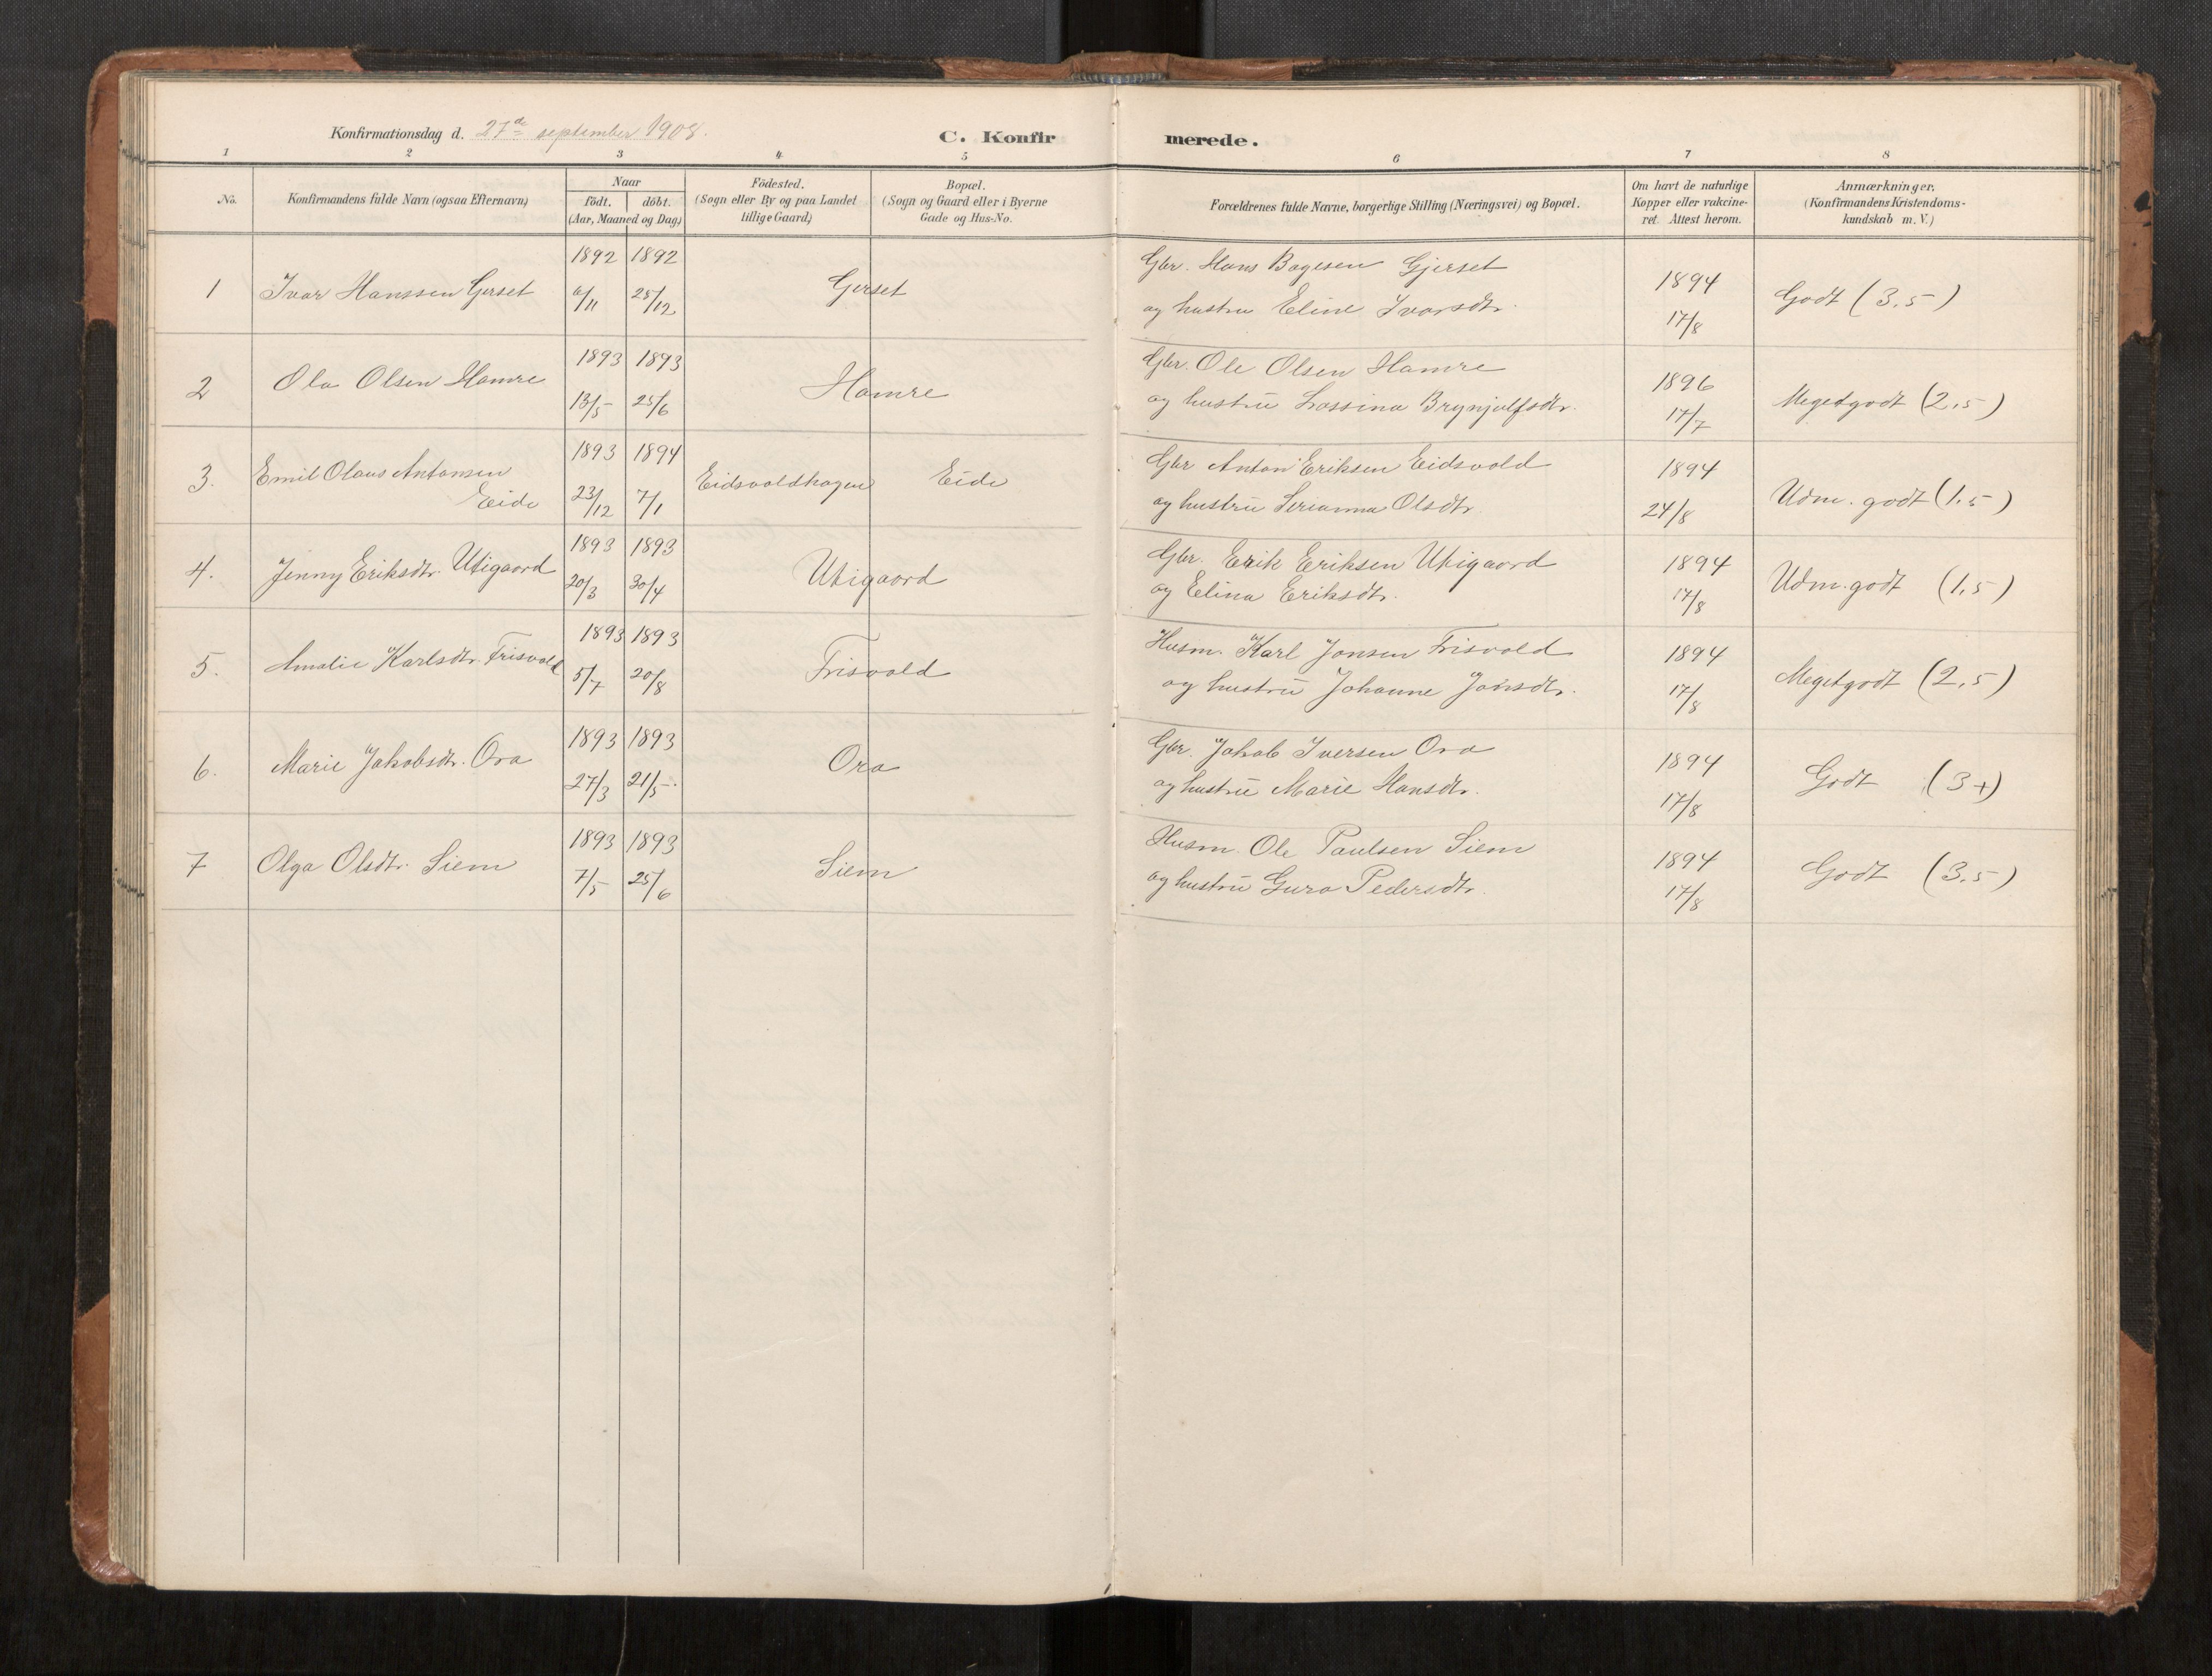 Konfirmationsdag d. 27de september 1908.
C. Konfirmerede.
1 2 3 4 5 6 7 8
No.
Konfirmandens fulde Navn (ogsaa Efternavn)
Naar
födt. döbt.
(Aar, Maaned og Dag)
Födested.
(Sogn eller By og paa Landet
tillige Gaard)
Bopæl.
(Sogn og Gaard eller i Byerne
Gade og Hus-No.
Forældrenes fulde Navne, borgerlige Stilling (Næringsvei) og Bopæl.
Om havt de naturlige
Kopper eller vakcine-
ret. Attest herom.
Anmærkninger.
(Konfirmandens Kristendoms-
kundskab m. V.)
1892 1892 Gbr. Hans Bagesen Gjerset
1 Ivar Hanssen Gerset 6/11 25/12 Gerset og hustru Eline Ivarsdtr. 1894 17/8 Godt (3,5)
1893 1893 Gbr. Ole Olsen Hamre
2 Ola Olsen Hamre 13/5 25/6 Hamre og hustru Lassina Brynjulfsdtr. 1896 17/7 Megetgodt (2,5)
1893 1894 Gbr Anton Eriksen Eidsvold
3. Emil Olaus Antonsen
Eide 23/12 7/1 Eidsvoldhagen Eide og hustru Serianna Olsdtr. 1894 24/8 Udm. godt (1,5)
1893 1893 Gbr. Erik Eriksen Utigaard
4. Jenny Eriksdtr. Utigaard 20/3 30/4 Utigaard og Elina Eriksdtr. 1894 17/8 Udm. godt (1,5)
1893 1893 Husm. Karl Jonsen Frisvold
5. Amalie Karlsdtr. Frisvold 5/7 20/8 Frisvold og hustru Johanne Jonsdtr. 1894 17/8 Megetgodt (2,5)
1893 1893 Gbr. Jakob Iversen Ora
6. Marie Jakobsdtr. Ora 27/3 21/5 Ora og hustru Marie Hansdtr. 1894 17/8 Godt (3+)
1893 1893 Husm. Ole Paulsen Siem
7 Olga Olsdtr. Siem 7/5 25/6 Siem og hustru Guro Pedersdtr. 1894 17/8 Godt (3,5)